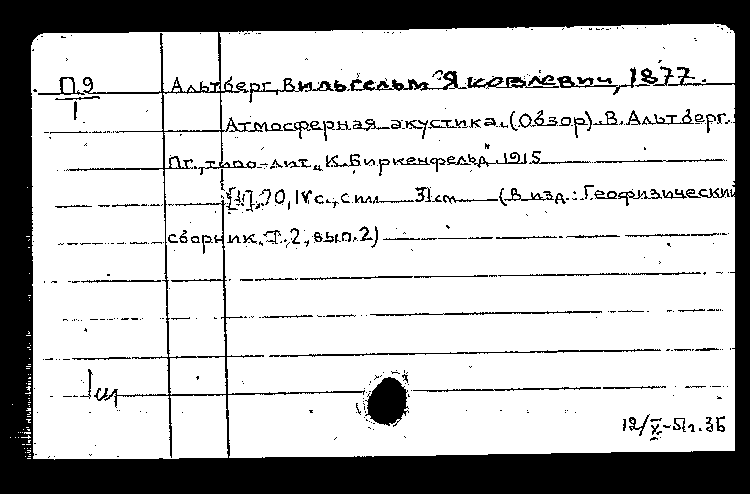 П.9
1
Альтберг, Вильгельм Яковлевич, 1877.
Атмосферная акустика. (Обзор). В. Альтберг.
Пг., типо-лит. „К. Биркенфельд" 1915
70, 18 с., с илл 31 см (В изд.: Геофизический
сборник. Т. 2, вып. 2)
1 щ
12/X-51г. ЗБ